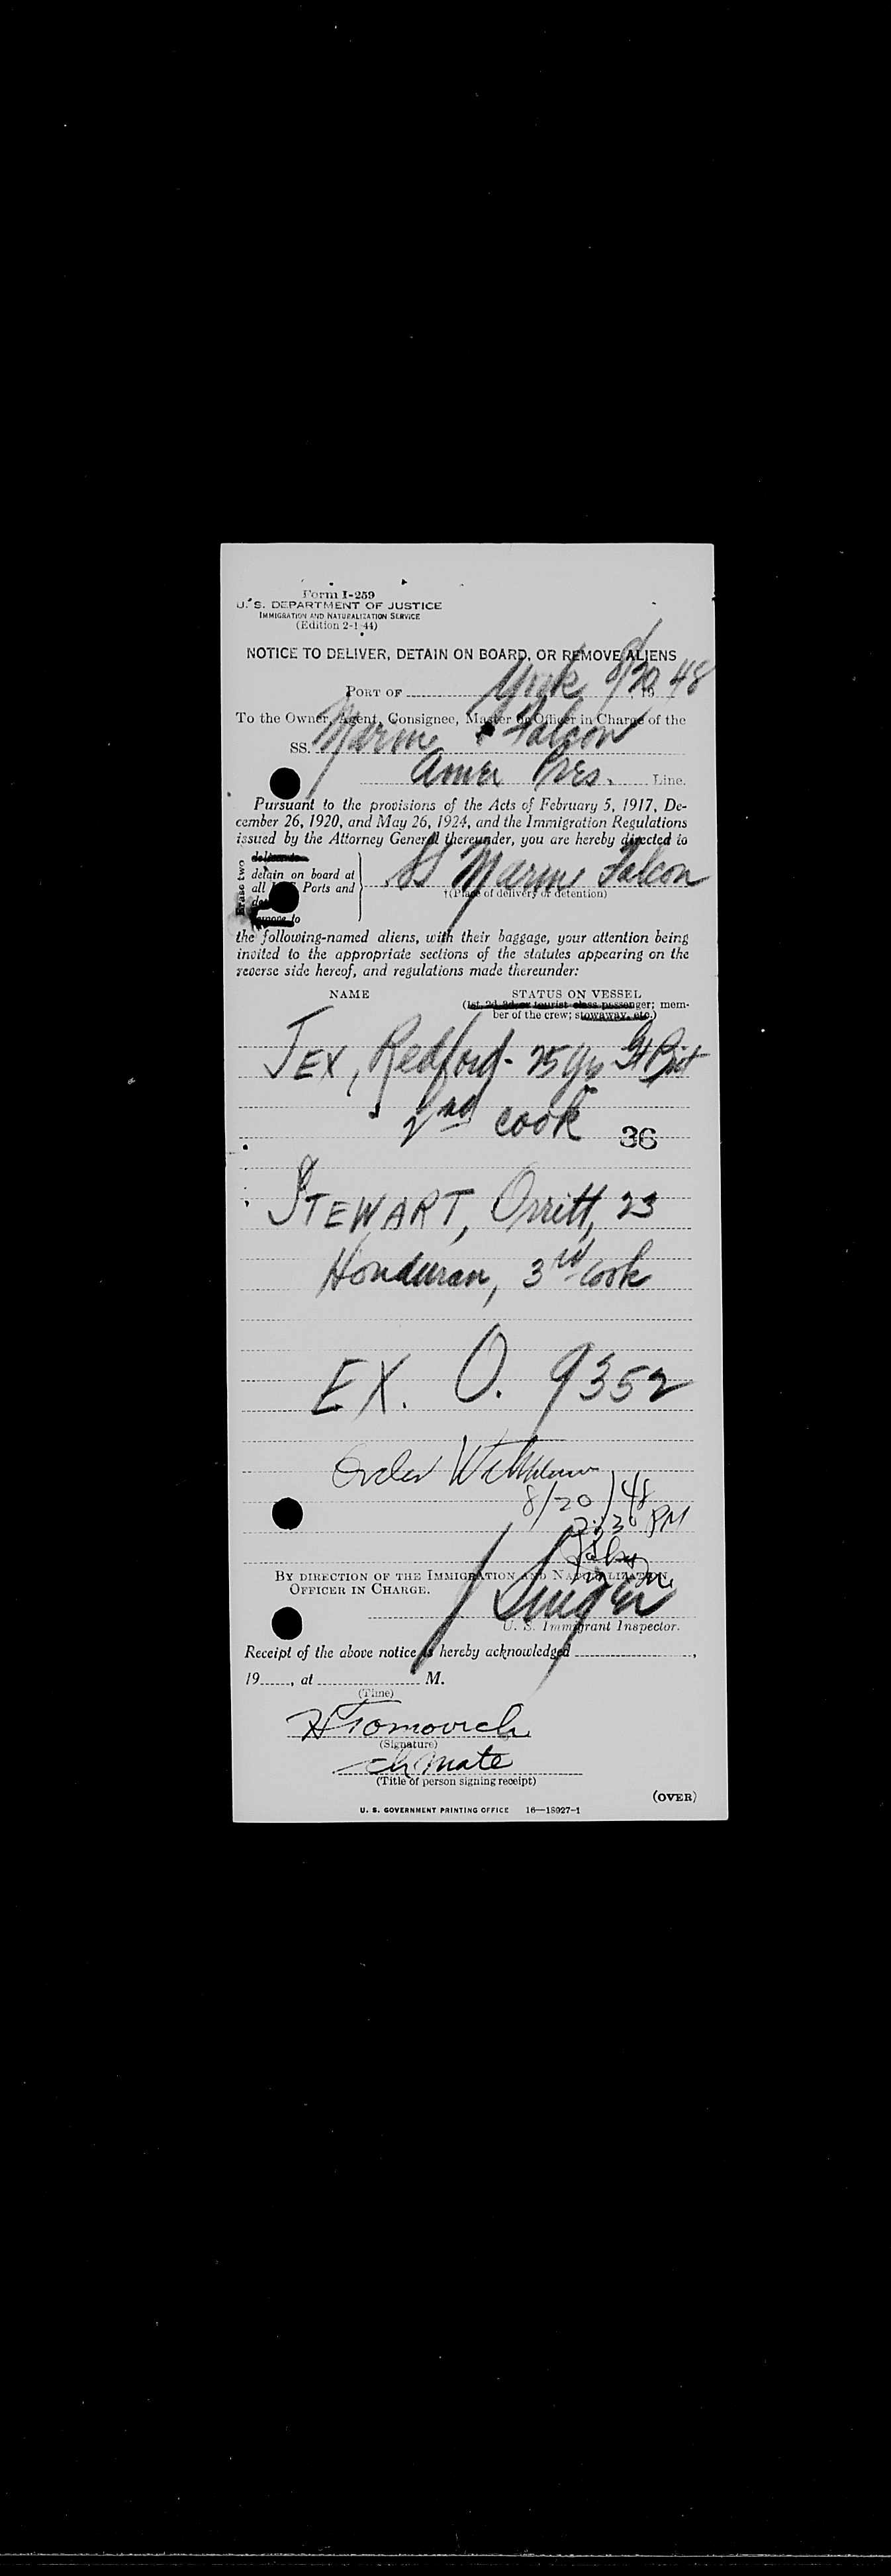 Form I-259
U. S. DEPARTMENT OF JUSTICE
IMMIGRATION AND NATURALIZATION SERVICE
(Edition 2-1-44)
NOTICE TO DELIVER, DETAIN ON BOARD, OR REMOVE ALIENS
PORT OF York 8/20, 1948
To the Owner, Agent, Consignee, Master or Officer in Charge of the
SS. Marine Falcon
Amer Pres. Line.
Pursuant to the provisions of the Acts of February 5, 1917, De-
cember 26, 1920, and May 26, 1924, and the Immigration Regulations
issued by the Attorney General thereunder, you are hereby directed to
Erase two
detain on board at
all U. S. Ports and
SS Marine Falcon
†(Place of delivery or detention)
remove to
the following-named aliens, with their baggage, your attention being
invited to the appropriate sections of the statutes appearing on the
reverse side hereof, and regulations made thereunder:
NAME STATUS ON VESSEL
(1st, 2d, 3d, or tourist class passenger; mem-
ber of the crew; stowaway, etc.)
JEX, Redford - 25 yrs Gt Brit
2nd cook 36
STEWART, Orritt, 23
Honduran, 3rd cook
EX. O. 9352
Order Withdrawn
8/20/48
2:30 PM
BY DIRECTION OF THE IMMIGRATION AND NATURALIZATION
OFFICER IN CHARGE.
Singer
U. S. Immigrant Inspector.
Receipt of the above notice is hereby acknowledged ,
19 , at M.
(Time)
(Signature)
ch mate
(Title of person signing receipt)
(OVER)
U. S. GOVERNMENT PRINTING OFFICE 16—18027-1